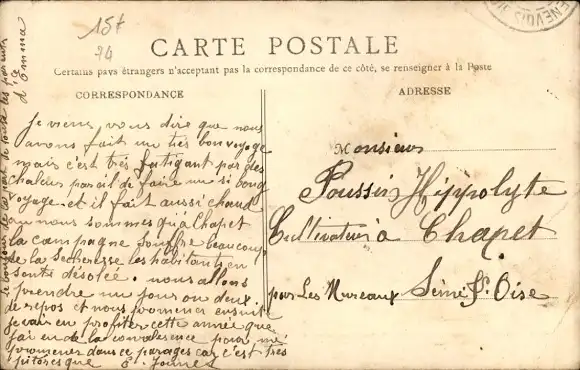 15t
74
CARTE POSTALE
Certains pays étrangers n'acceptent pas la correspondance de ce côté, se renseigner à la Poste
CORRESPONDANCE
ADRESSE
Je viens, vous dire que nous
avons fait un très bon voyage
mais c'est très fatigant par des
chaleur pareil de faire un si long
voyage. et il fait aussi chaud
ou nous sommes qu'à Chapet
la campagne souffre beaucoup
de la secheresse les habitants en
sont désolée. nous allons
prendre un jour ou deux
de repos et nous promener ensuite
je vais en profiter cette année que
j'ai eu de la convalesence pour me
promener dans ce parages car c'est très
pitoresque E.
le bonjour de la part de toute les parents
à d'Emma
Monsieur
Poussin Hippolyte
Cultivateur à Chapet
par Les Mureaux Seine & Oise